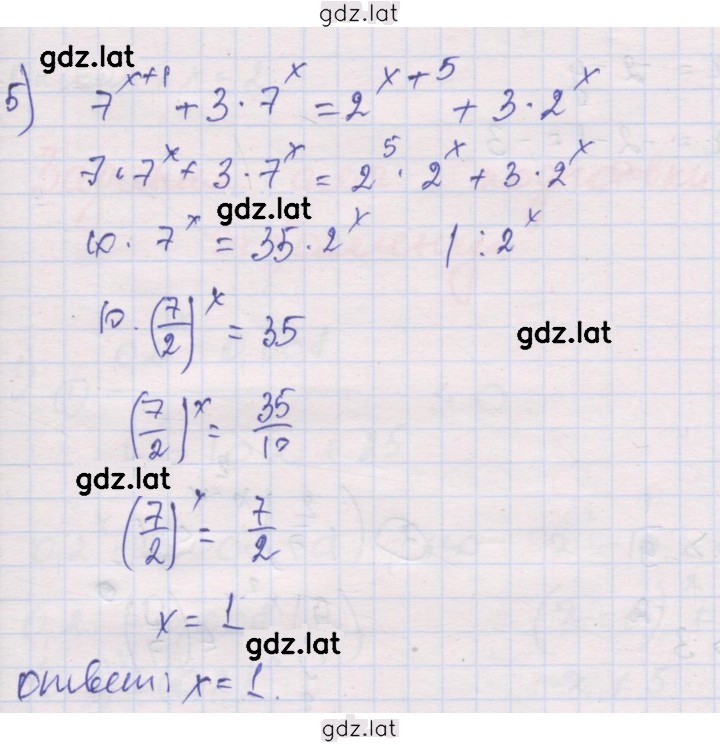 gdz.lat
gdz.lat
5) 7^{x+1} + 3 · 7^x = 2^{x+5} + 3 · 2^x
7 · 7^x + 3 · 7^x = 2^5 · 2^x + 3 · 2^x
gdz.lat
10 · 7^x = 35 · 2^x | : 2^x
10 · (7/2)^x = 35
gdz.lat
(7/2)^x = 35/10
gdz.lat
(7/2)^x = 7/2
x = 1
gdz.lat
Ответ: x = 1.
gdz.lat